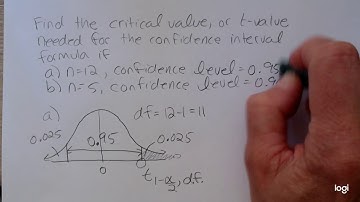 Find the critical value, or t-value
needed for the confidence interval
formula if
a) n=12, confidence level=0.95
b) n=5, confidence level=0.9
a)
df=12-1=11
0.025 0.95 0.025
0
t1-α/2, d.f.
logi